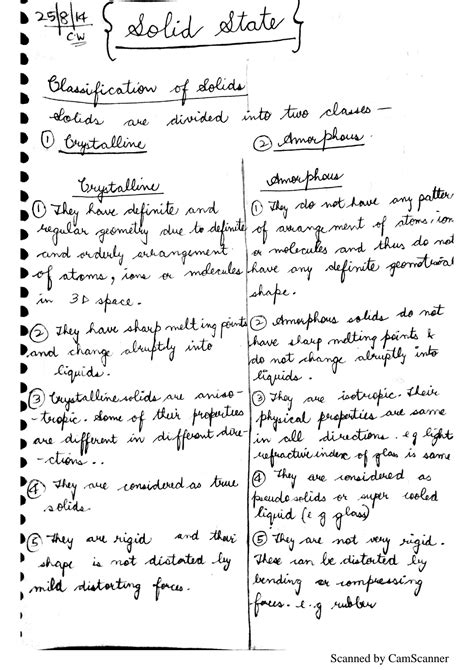 25/8/14
CW
Solid State
Classification of Solids
Solids are divided into two classes —
① Crystalline
② Amorphous.
Crystalline
① They have definite and
regular geometry due to definite
and orderly arrangement
of atoms, ions or molecules
in 3D space.
② They have sharp melting points
and change abruptly into
liquids.
③ Crystalline solids are aniso-
tropic. Some of their properties
are different in different dire-
-ctions..
④ They are considered as true
solids.
⑤ They are rigid and their
shape is not distorted by
mild distorting forces.
Amorphous
① They do not have any patter
of arrangement of atoms, ion
or molecules and thus do not
have any definite geometrical
shape.
② Amorphous solids do not
have sharp melting points &
do not change abruptly into
liquids.
③ They are isotropic. Their
physical properties are same
in all directions. e.g light
refractive index of glass is same
④ They are considered as
pseudo solids or super cooled
liquid (e g glass)
⑤ They are not very rigid.
These can be distorted by
bending or compressing
forces. e.g rubber
Scanned by CamScanner